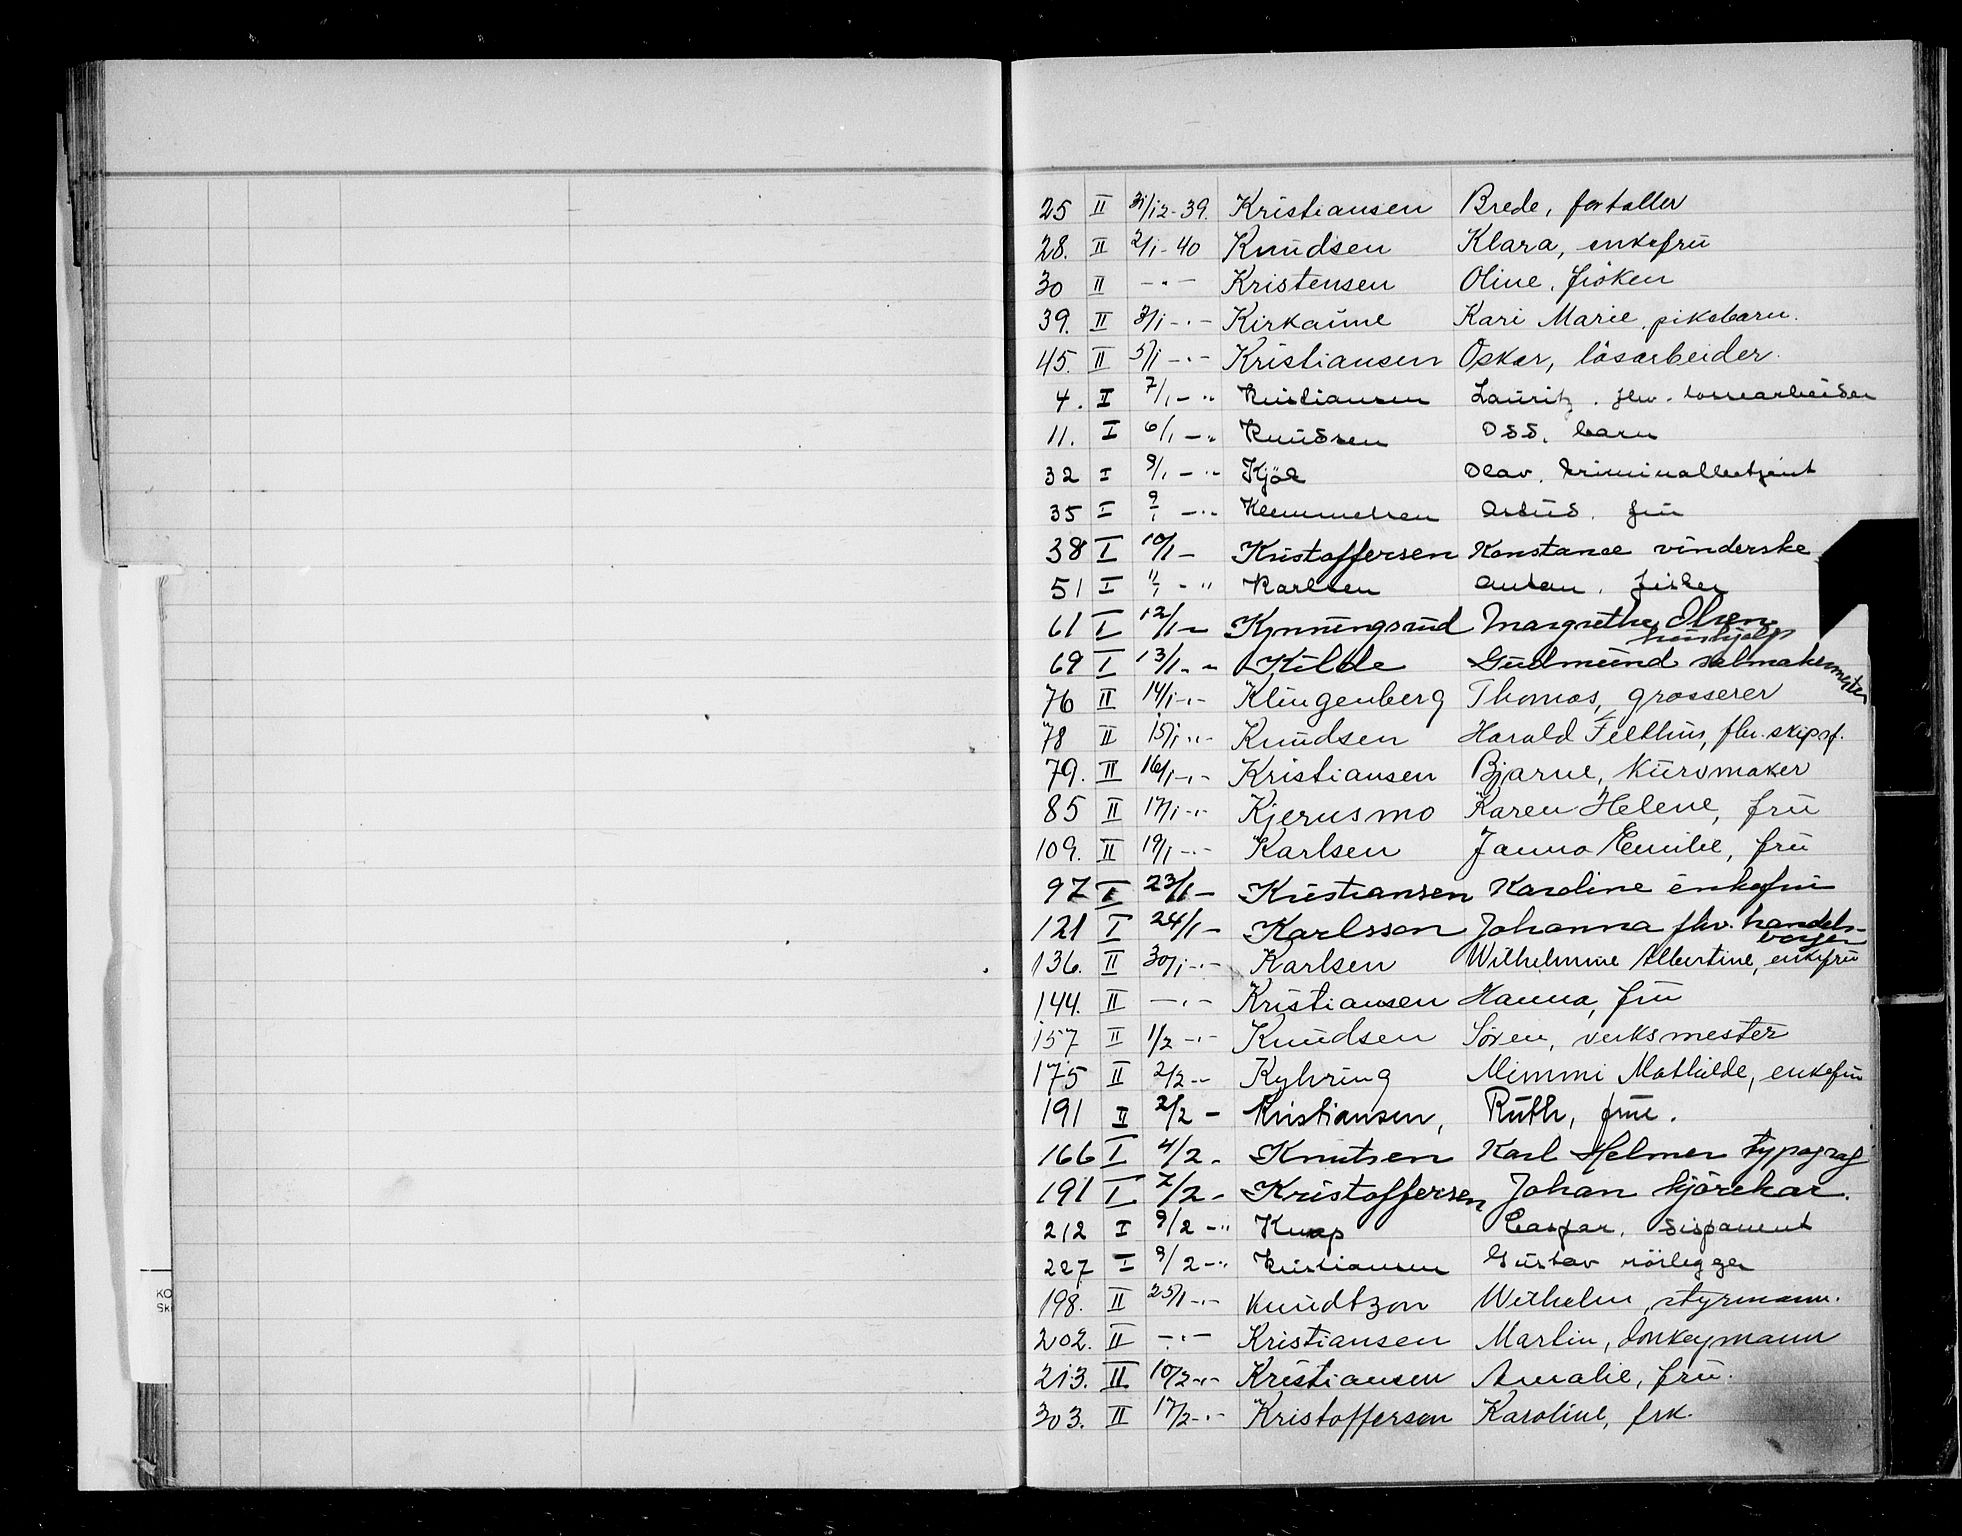 25 II 31/12-39. Kristiansen Brede, fortøller
28. II 2/1-40 Knudsen Klara, enkefru
30 II -"- Kristensen Oline, fröken
39. II 3/1 -"- Kirkaune Kari Marie, pikebarn.
45. II 5/1 -"- Kristiansen Oskar, lösarbeider.
4. I 7/1 - " Kristiansen Lauritz, fhv. tomtearbeider
11. I 6/1 - " Knudsen Odd, barn
32 I 9/1 - " Kjöl Olav, kriminalbetjent
35 I 9/1 - " Klemmetsen Astrid, fru
38 I 10/1 - Kristoffersen Konstanse vinderske
51 I 11/1 - " Karlsen Anton, fisker
61 I 12/1 - Kynningsrud Margrethe Olsen
hushjelp
69 I 13/1 - " Kilde Gudmund salmakermester
76 II 14/1 -"- Klingenberg Thomas, grosserer
78 II 15/1 -"- Knudsen Harald Feilhus, fhv. skipsf.
79. II 16/1 -"- Kristiansen Bjarne, kurvmaker
85 II 17/1 -"- Kjerusmo Karen Helene, fru
109. II 19/1 -"- Karlsen Janna Emilie, fru
97 I 23/1 - Kristiansen Karoline enkefru
121 I 24/1 - Karlsson Johanna fhv. handels-
borger
136. II 30/1 -"- Karlsen Wilhelmine Albertine, enkefru
144. II -"- Kristiansen Hanna, fru
157 II 1/2 -"- Knudsen Sören, verksmester
175 II 2/2 -"- Kyhring Mimmi Mathilde, enkefru
191 II 2/2 - Kristiansen, Ruth, frue.
166 I 4/2 - Knutsen Karl Helmer typograf
191 I 7/2 - Kristoffersen Johan kjörekar.
212 I 9/2 - " Knap Caspar, disponent
227 I 9/2 - " Kristiansen Gustav rörlegger
198. II 25/1 -"- Knudtzon Wilhelm, styrmann.
202. II -"- Kristiansen Martin, donkeymann
213. II 10/2 -"- Kristiansen Amalie, fru.
303. II 17/2 -"- Kristofferson Karoline, frk.
KO
Ski